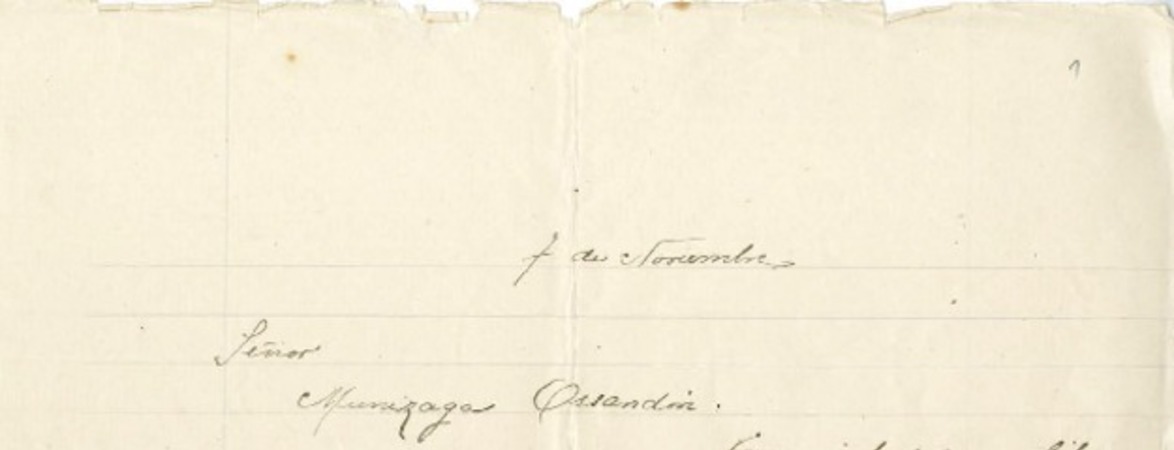 1
7 de Noviembre
Señor
Munizaga Ossandón.